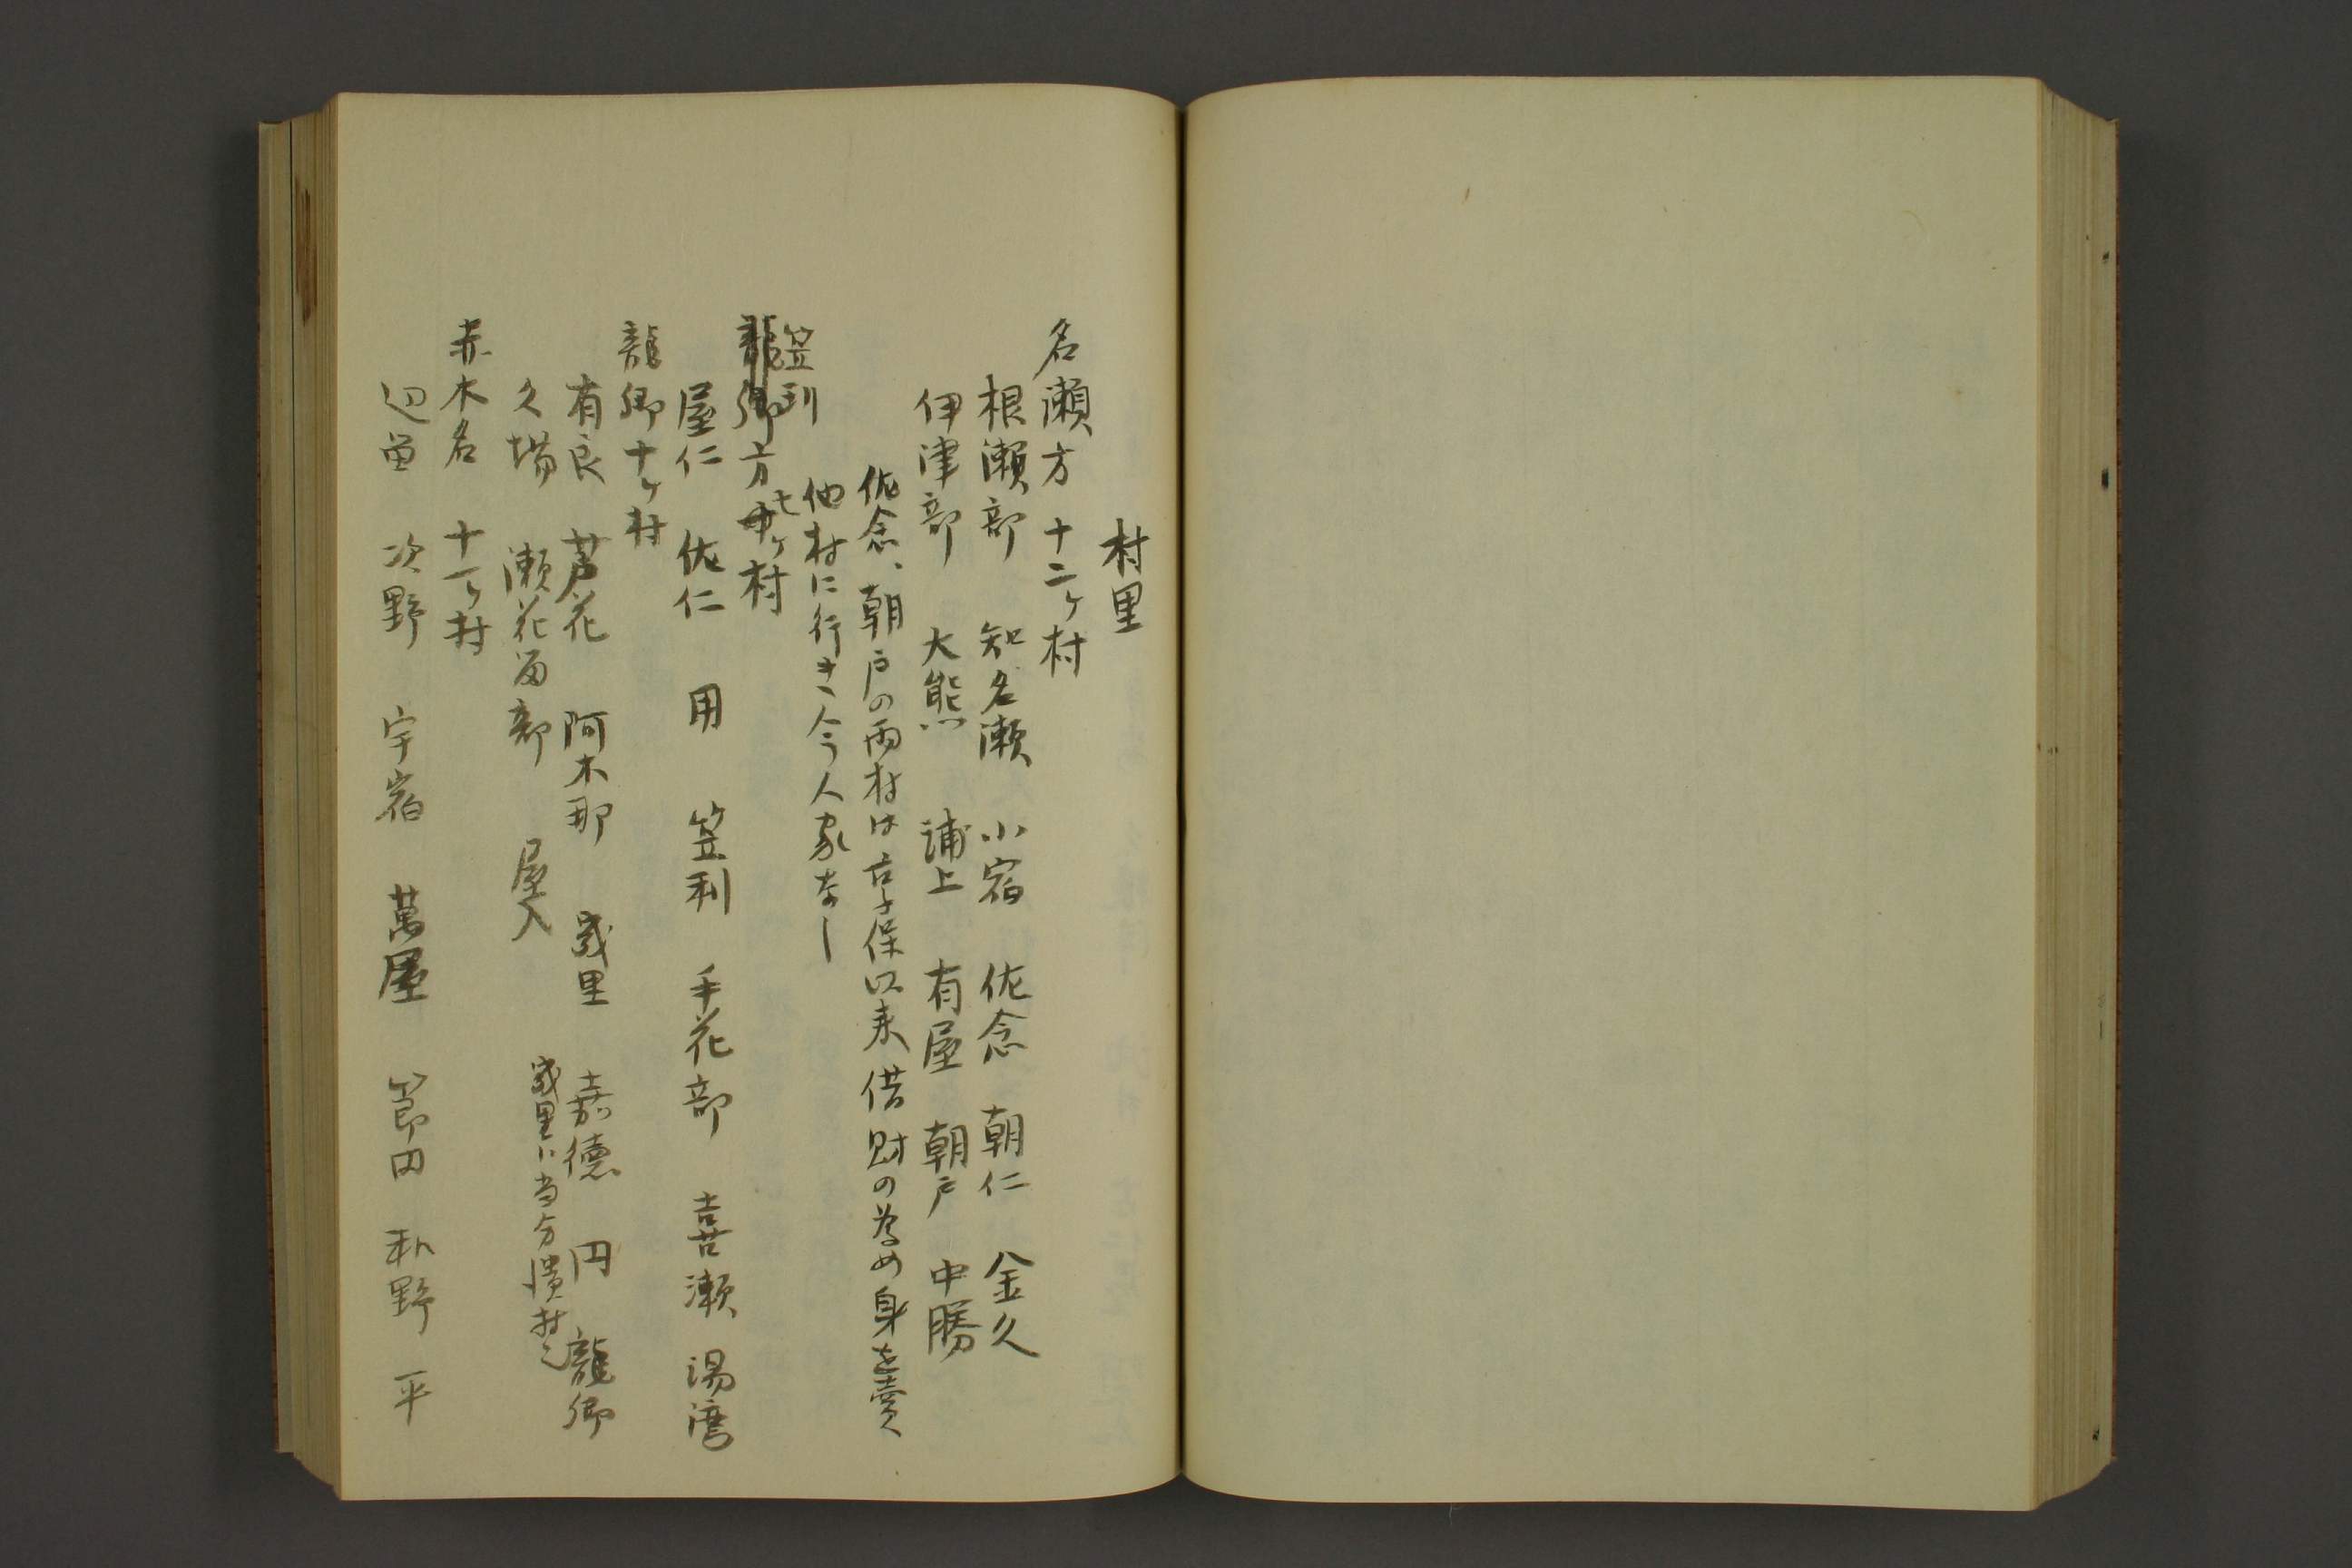 村里
名瀬方 十二ヶ村
根瀬部 知名瀬 小宿 佐念 朝仁 金久
伊津部 大熊 浦上 有屋 朝戸 中勝
佐念、朝戸の両村は享保以来借財の為め身を賣
他村に行き今人家なし
笠利
龍郷方 七ヶ村
屋仁 佐仁 用 笠利 手花部 喜瀬 湯湾
龍郷十ヶ村
有良 芦花 阿木那 嵗里 嘉徳 円 龍郷
久場 瀬花留部 屋入 嵗里ハ当分潰村也
赤木名 十一ヶ村
辺留 次野 宇宿 萬屋 節田 和野 平